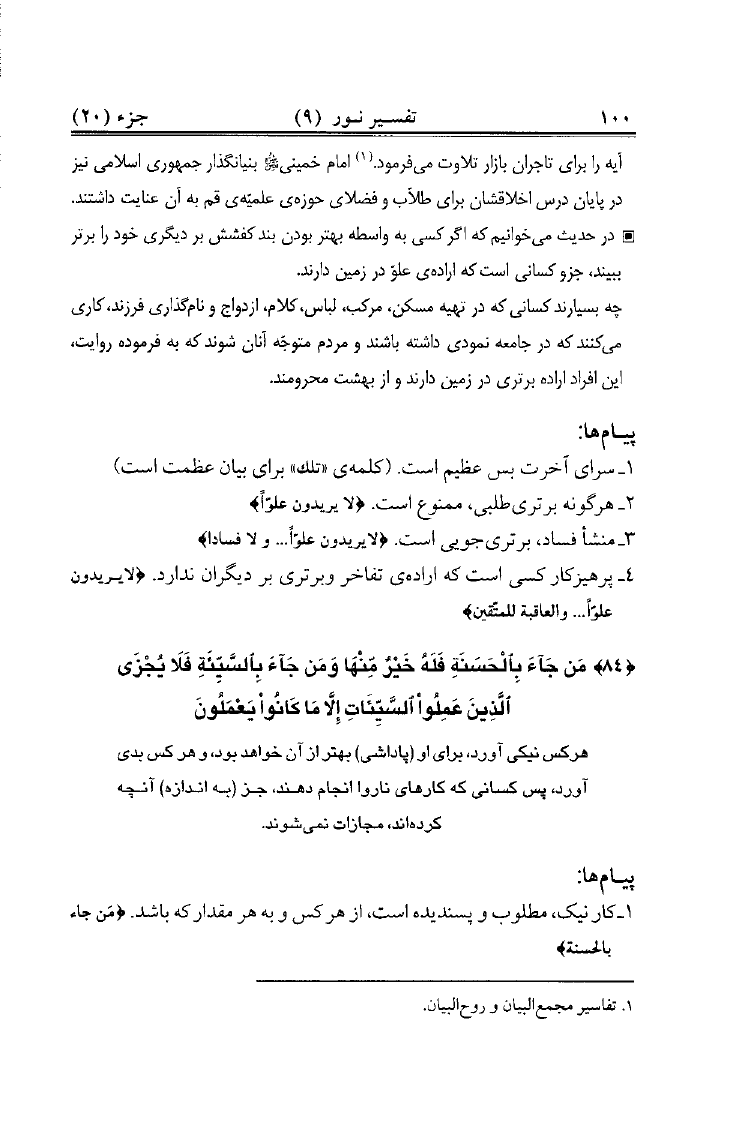 ۱۰۰ تفسیر نور (۹) جزء (۲۰)
آیه را برای تاجران بازار تلاوت می‌فرمود.(۱) امام خمینی بنیانگذار جمهوری اسلامی نیز
در پایان درس اخلاقشان برای طلاّب و فضلای حوزه‌ی علمیّه‌ی قم به آن عنایت داشتند.
▣ در حدیث می‌خوانیم که اگر کسی به واسطه بهتر بودن بند کفشش بر دیگری خود را برتر
ببیند، جزو کسانی است که اراده‌ی علوّ در زمین دارند.
چه بسیارند کسانی که در تهیه مسکن، مرکب، لباس، کلام، ازدواج و نام‌گذاری فرزند، کاری
می‌کنند که در جامعه نمودی داشته باشند و مردم متوجّه آنان شوند که به فرموده روایت،
این افراد اراده برتری در زمین دارند و از بهشت محرومند.
پیام‌ها:
۱ـ سرای آخرت بس عظیم است. (کلمه‌ی «تلك» برای بیان عظمت است)
۲ـ هرگونه برتری‌طلبی، ممنوع است. ﴿لا یریدون علوّاً﴾
۳ـ منشأ فساد، برتری‌جویی است. ﴿لایریدون علوّاً... و لا فسادا﴾
٤ـ پرهیزکار کسی است که اراده‌ی تفاخر وبرتری بر دیگران ندارد. ﴿لایریدون
علوّاً... والعاقبة للمتّقین﴾
﴿٨٤﴾ مَن جَآءَ بِٱلْحَسَنَةِ فَلَهُ خَيْرٌ مِّنْهَا وَمَن جَآءَ بِٱلسَّيِّئَةِ فَلَا يُجْزَى
ٱلَّذِينَ عَمِلُواْ ٱلسَّيِّئَاتِ إِلَّا مَا كَانُواْ يَعْمَلُونَ
هرکس نیکی آورد، برای او (پاداشی) بهتر از آن خواهد بود، و هر کس بدی
آورد، پس کسانی که کارهای ناروا انجام دهند، جز (به اندازه) آنچه
کرده‌اند، مجازات نمی‌شوند.
پیام‌ها:
۱ـ کار نیک، مطلوب و پسندیده است، از هر کس و به هر مقدار که باشد. ﴿مَن جاء
بالحسنة﴾
۱. تفاسیر مجمع‌البیان و روح‌البیان.